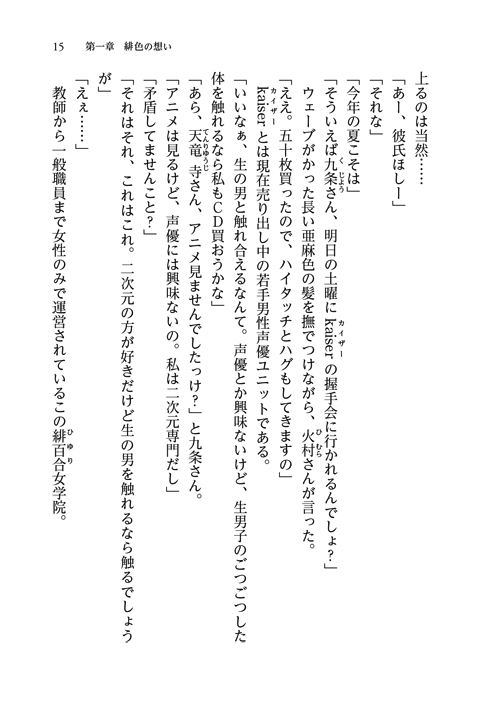 15　第一章　緋色の想い
上るのは当然……
「あー、彼氏ほしー」
「それな」
「今年の夏こそは」
「そういえば九条さん、明日の土曜にkaiserの握手会に行かれるんでしょ？」
ウェーブがかった長い亜麻色の髪を撫でつけながら、火村さんが言った。
「ええ。五十枚買ったので、ハイタッチとハグもしてきますの」
kaiserとは現在売り出し中の若手男性声優ユニットである。
「いいなぁ、生の男と触れ合えるなんて。声優とか興味ないけど、生男子のごつごつした
体を触れるなら私もＣＤ買おうかな」
「あら、天竜寺さん、アニメ見ませんでしたっけ？」と九条さん。
「アニメは見るけど、声優には興味ないの。私は二次元専門だし」
「矛盾してませんこと？」
「それはそれ、これはこれ。二次元の方が好きだけど生の男を触れるなら触るでしょう
が」
「えぇ……」
教師から一般職員まで女性のみで運営されているこの緋百合女学院。